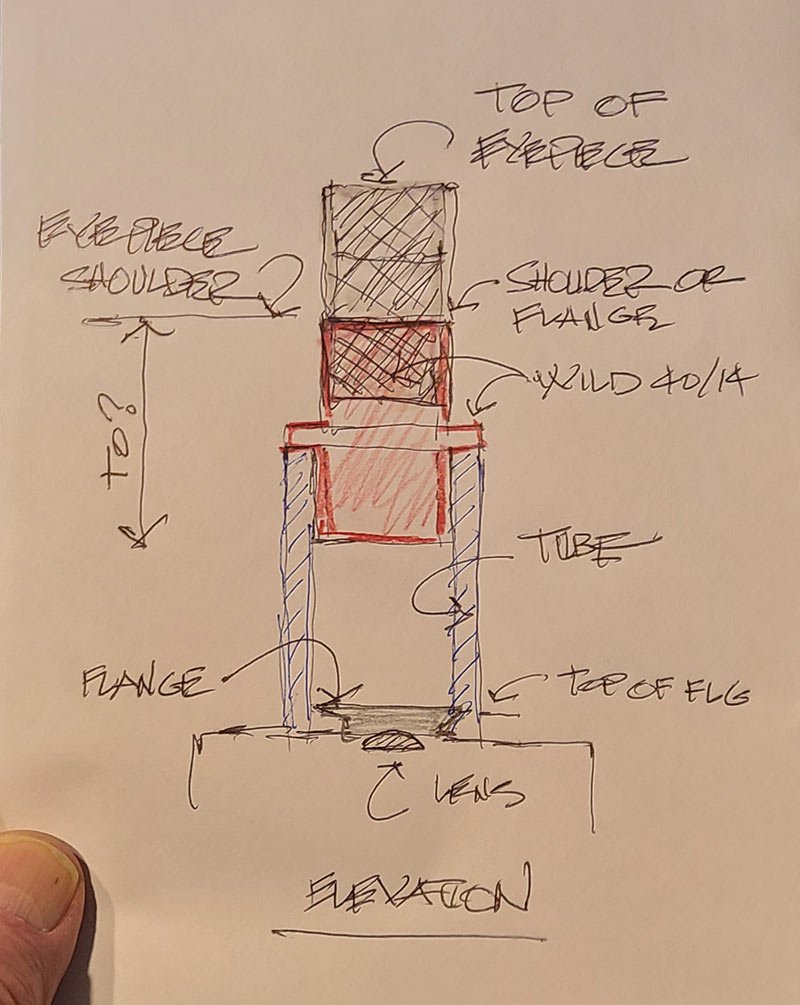 TOP OF
EYEPIECE
EYEPIECE
SHOULDER
SHOULDER OR
FLANGE
WILD 40/14
TO?
TUBE
FLANGE
TOP OF FLG
LENS
ELEVATION